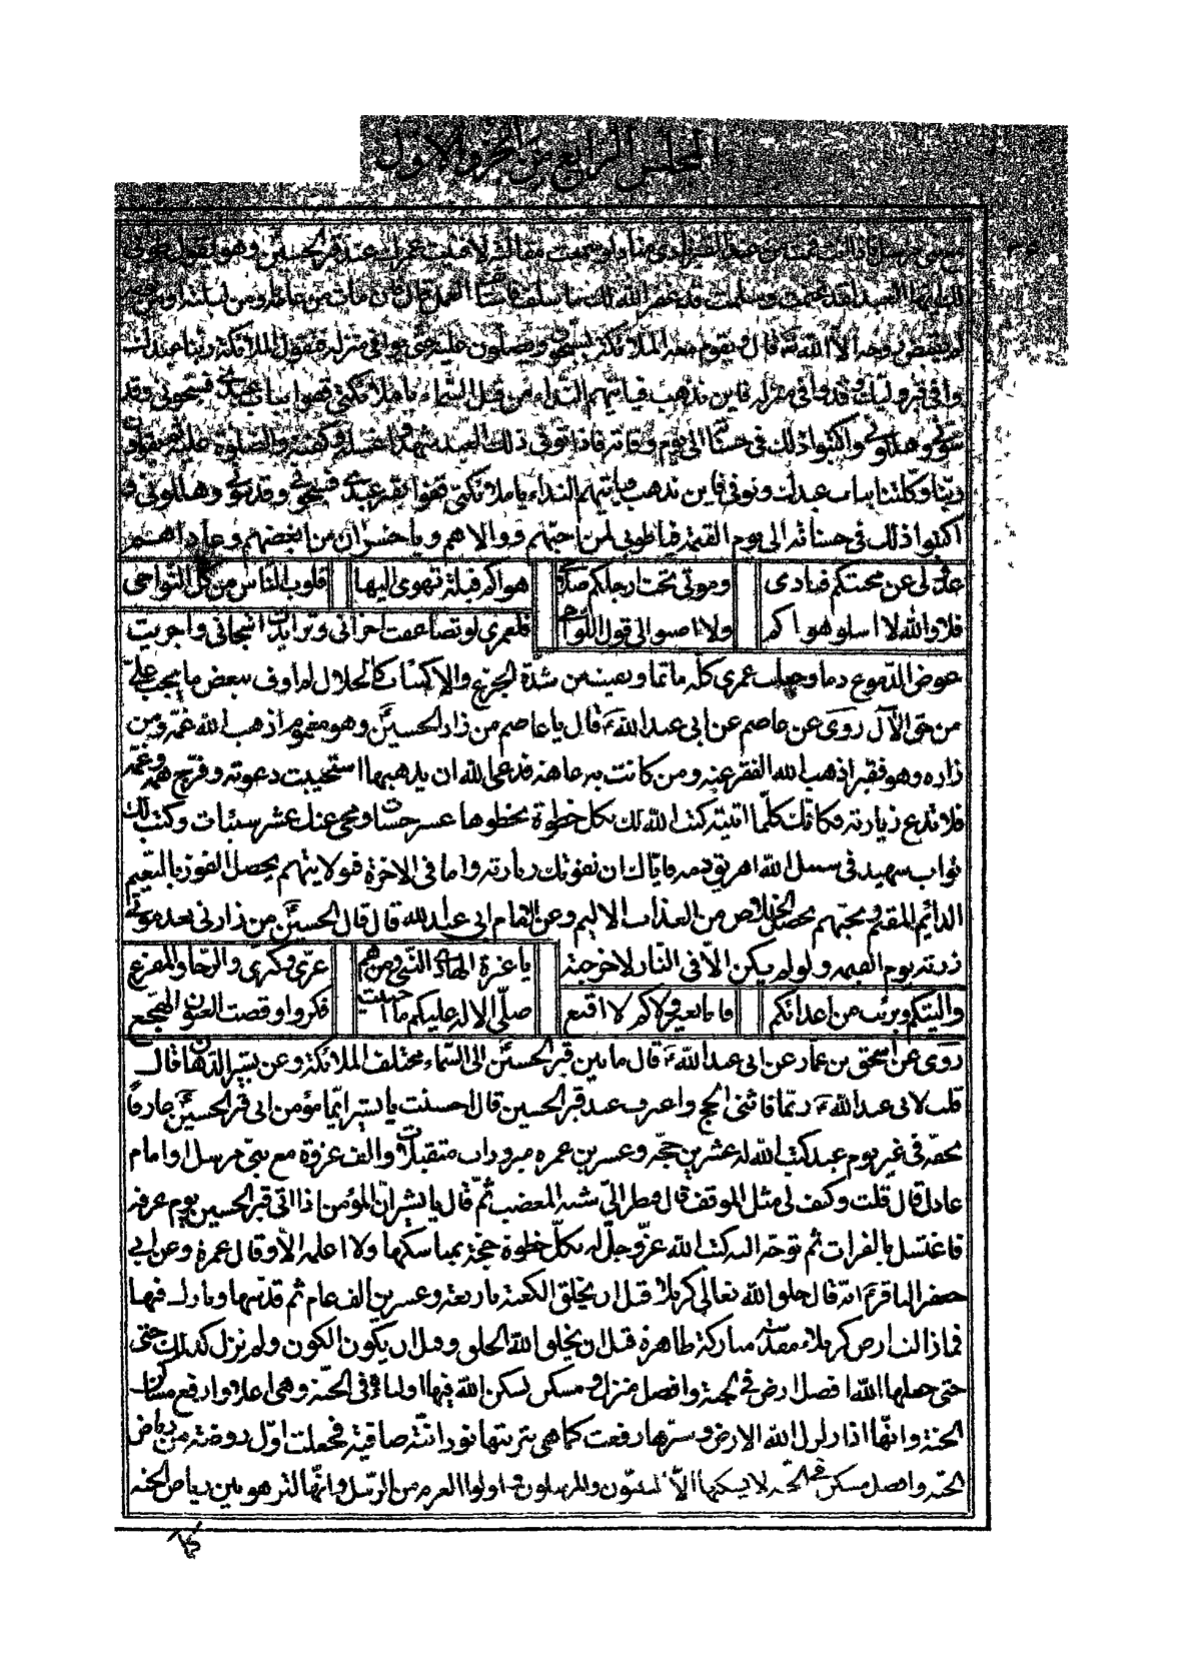 المجلس الرابع من الجزء الاول
لك ايها العبد لقد غنمت وسلمت قد غفر الله لك ما سلف فاستأنف العمل قال فان مات من عامه او من ليلته او يومه
لم يقبض روحه الا الله قال ويقوم معه الملائكة يسبحون ويصلون عليه حتى يوافى منزله فتقول الملائكة ربنا عبدك
وافى قبر وليك وقد وافى منزله فاين نذهب فياتيهم النداء من قبل السماء يا ملائكتى قفوا بباب عبدى فسبحونى وقد
سونى وهللونى واكتبوا ذلك فى حسناته الى يوم وفاته فاذا توفى ذلك العبد شهدوا غسله وكفنه والصلوة عليه ثم يقولون
ربنا وكلتنا بباب عبدك وتوفى فاين نذهب فياتيهم النداء يا ملائكتى قفوا بقبر عبدى فسبحونى وقدسونى وهللونى و
اكتبوا ذلك فى حسناته الى يوم القيمة فيا طوبى لمن احبهم ووالاهم ويا خسران من ابغضهم وعاداهم
عذلى عن محبتكم فسادى وموتى تحت ارجلكم هواكم قبلة تهوى اليها قلوب الناس من كل النواحى
فلا والله لا اسلو هواكم ولا اصبو الى قول اللواحى فلعمرى لو تضاعفت احزانى وتزايدت اشجانى واجريت
عوض الدموع دما وجعلت عمرى كله ماتما وبقيت من شدة الجزع والاكتئاب كالخلال لم اوف ببعض ما يجب على
من حق الآل روى عن عاصم عن ابى عبد الله ع قال يا عاصم من زار الحسين وهو مغموم اذهب الله غمه ومن
زاره وهو فقير اذهب الله الفقر عنه ومن كانت به عاهة فدعى الله ان يذهبها استجيبت دعوته وفرج همه وغمه
فلا تدع زيارته فكانك كلما اتيته كتب الله لك بكل خطوة تخطوها عشر حسنات ومحى عنك عشر سيئات وكتب لك
ثواب شهيد فى سبيل الله اهريق دمه فاياك ان تفوتك زيارته واما فى الاخرة فولايتهم يحصل الفوز بالنعيم
الدائم المقيم ومحبتهم يحصل الخلاص من العذاب الاليم وعن ابى عبد الله قال قال الحسين من زارنى بعد موتى
زرته يوم القيمة ولو لم يكن الا فى النار لاخرجته يا عترة الهادى النبى ومن هم عزى وكنزى والرجا والمفزع
واليتكم وبرئت من اعدائكم فانا بغير ولاكم لا اقنع صلى الاله عليكم ما احييت فكر واوقضت العيون الهجع
روى عن اسحق بن عمار عن ابى عبد الله ع قال ما بين قبر الحسين الى السماء مختلف الملائكة وعن بشير الدهان قال
قلت لابى عبد الله ع ربما فاتنى الحج واعرف عند قبر الحسين قال احسنت يا بشير ايما مؤمن اتى قبر الحسين عارفا
بحقه فى غير يوم عيد كتب الله له عشرين حجة وعشرين عمرة مبرورات متقبلات والف غزوة مع نبى مرسل او امام
عادل قال قلت وكيف لى بمثل الموقف قال فنظر الى شبه المغضب ثم قال يا بشير ان المؤمن اذا اتى قبر الحسين يوم عرفة
فاغتسل بالفرات ثم توجه اليه كتب الله عز وجل له بكل خطوة حجة بمناسكها ولا اعلمه الا وقال عمرة وعن ابى
جعفر الباقر ع انه قال خلق الله تعالى كربلا قبل ان يخلق الكعبة باربعة وعشرين الف عام ثم قدسها وبارك فيها
فمازالت ارض كربلاء مقدسة مباركة طاهرة قبل ان يخلق الله الخلق وقبل ان يكون الكون ولم تزل كذلك حتى
حتى جعلها الله افضل ارض فى الجنة وافضل منزل ومسكن يسكن الله فيها اولياءه فى الجنة وهى اعلا وارفع مساكن
الجنة وانها اذا زلزل الله الارض وسيرها رفعت كما هى بتربتها نورانية صافية فجعلت اول روضة من رياض
الجنة وافضل مسكن فى الجنة لا يسكنها الا النبيون والمرسلون واولوا العزم من الرسل وانها لتزهو بين رياض الجنة
كما